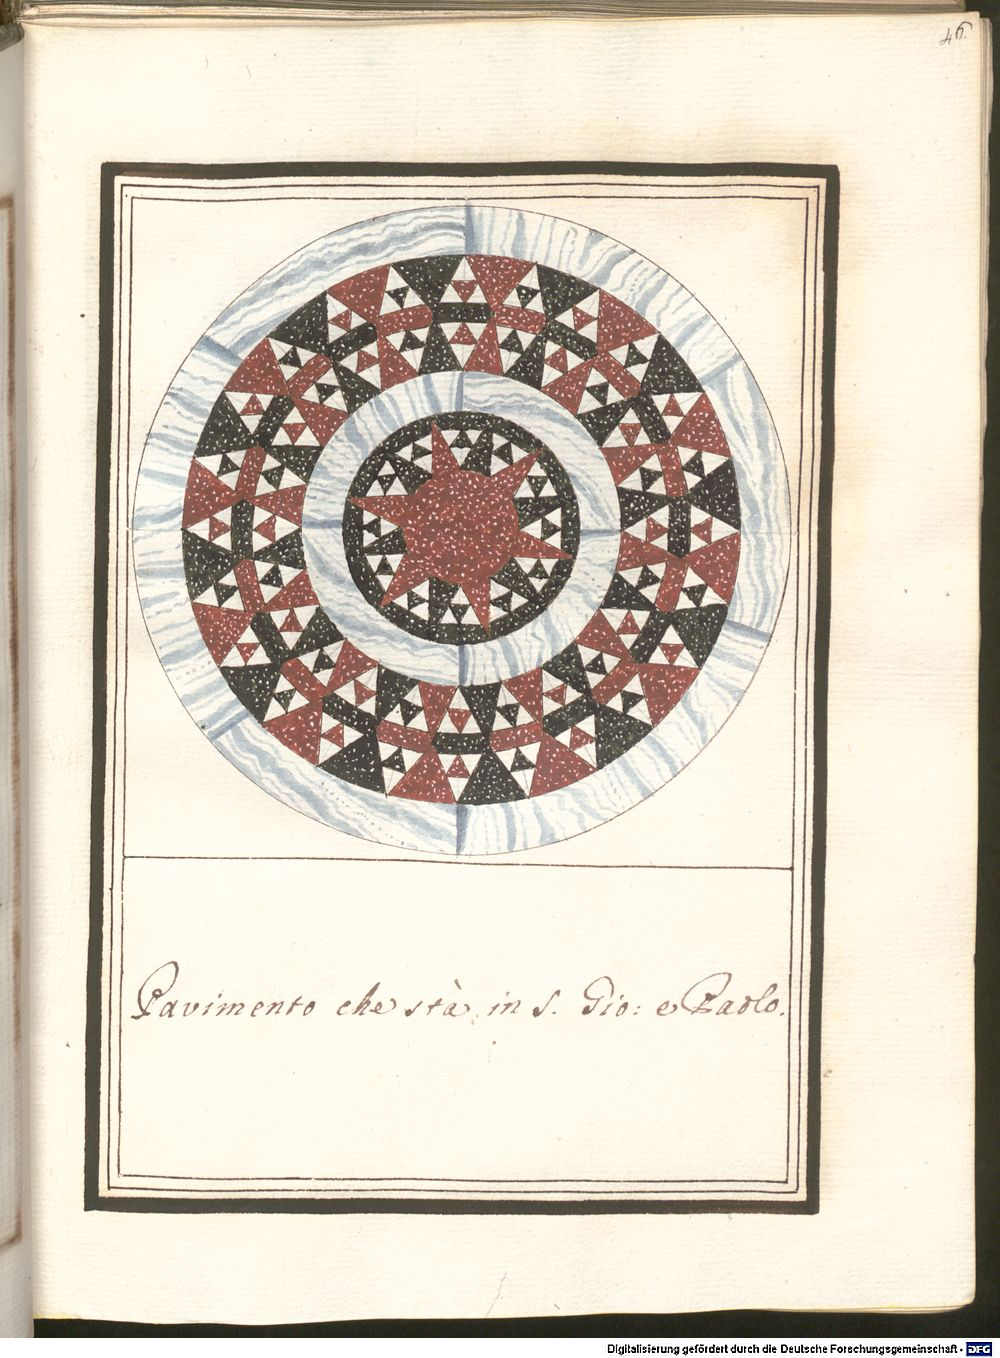 46.
Pavimento che stà in S. Gio: e Paolo.
Digitalisierung gefördert durch die Deutsche Forschungsgemeinschaft - DFG